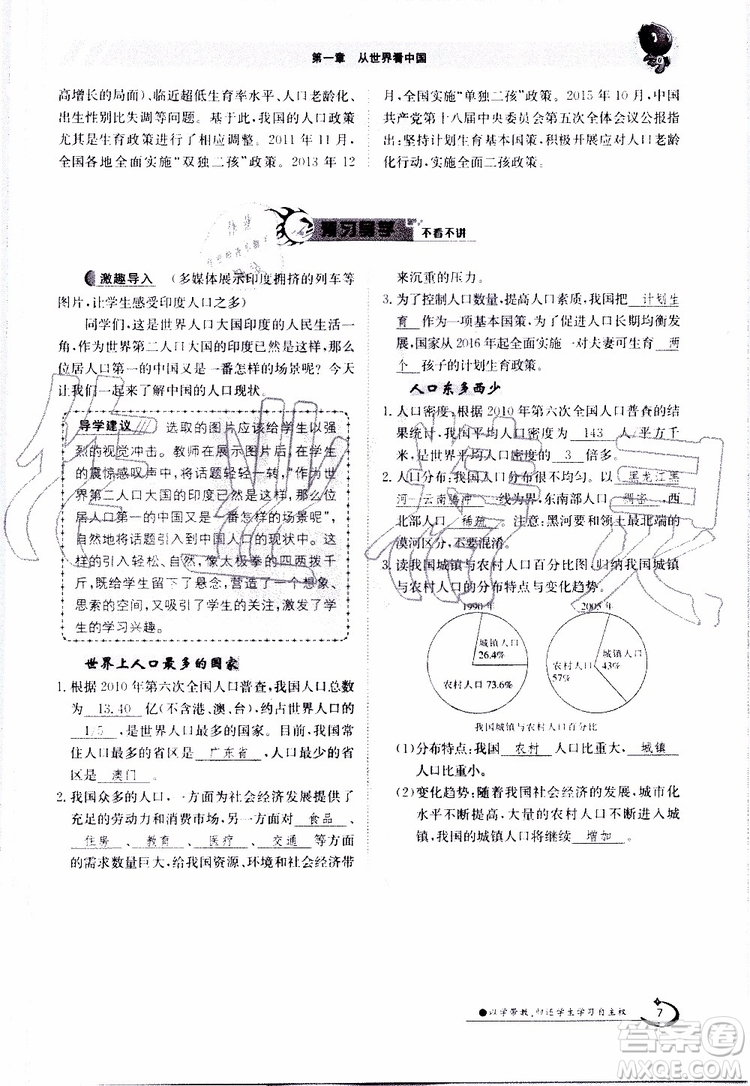 第一章 从世界看中国
高增长的局面)、临近超低生育率水平、人口老龄化、
出生性别比失调等问题。基于此,我国的人口政策
尤其是生育政策将进行相应调整。2011 年 11 月,
全国各地全面实施“双独二孩”政策。2013 年 12
月,全国实施“单独二孩”政策。2015 年 10 月,中国
共产党第十八届中央委员会第五次全体会议公报指
出:坚持计划生育基本国策,积极开展应对人口老龄
化行动,实施全面二孩政策。
预习导学 不看不讲
激趣导入 (多媒体展示印度拥挤的列车等
图片,让学生感受印度人口之多)
同学们,这是世界人口大国印度的人民生活一
角,作为世界第二人口大国的印度尚且如此,那么
位居人口第一的中国又是一番怎样的场景呢?今天
让我们一起来了解中国的人口现状。
导学建议 选取的图片应该给学生以强
烈的视觉冲击。教师在展示图片后,在学生
的震惊感叹声中,将话题轻轻一转,“作为世
界第二人口大国的印度尚且如此,那么位
居人口第一的中国又是一番怎样的场景呢”,
自然地将话题引入中国的人口现状中。这样
的引入轻松、自然,像太极拳的四两拨千
斤,既给学生留下了悬念,营造了一个想象、
思索的空间,又吸引了学生的关注,激发了学
生的学习兴趣。
世界上人口最多的国家
1. 根据 2010 年第六次全国人口普查,我国人口总数
为 13.40 亿(不含港、澳、台),约占世界人口的
1/5 ,是世界人口最多的国家。目前,我国常
住人口最多的省区是 广东省 ,人口最少的省
区是 澳门 。
2. 我国众多的人口,一方面为社会经济发展提供了
充足的劳动力和消费市场,另一方面对 食品 、
住房 、 教育 、 医疗 、 交通 等方面
的需求数量巨大,给我国资源、环境和社会经济带
来沉重的压力。
3. 为了控制人口数量,提高人口素质,我国把 计划生
育 作为一项基本国策,为了促进人口长期均衡发
展,国家从 2016 年起全面实施一对夫妻可生育 两
个 孩子的计划生育政策。
人口东多西少
1. 人口密度:根据 2010 年第六次全国人口普查的结
果统计,我国平均人口密度为 143 人/平方千
米,是世界平均人口密度的 3 倍多。
2. 人口分布:我国人口分布很不均匀。以 黑龙江黑
河—云南腾冲 一线为界,东南部人口 稠密 ,西
北部人口 稀疏 。注意:黑河要和我国最北端的
漠河区分开,不要混淆。
3. 读我国城镇与农村人口百分比图,归纳我国城镇
与农村人口的分布特点与变化趋势。
1990 年 2005 年
城镇人口 26.4%
农村人口 73.6%
城镇人口 43%
农村人口 57%
我国城镇与农村人口百分比
(1)分布特点:我国 农村 人口比重大, 城镇
人口比重小。
(2)变化趋势:随着我国社会经济的发展,城市化
水平不断提高,大量的农村人口将移居城
镇,我国的城镇人口将继续 增加 。
●以学带教,归还学生学习自主权
7
答案圈
MXQE.COM